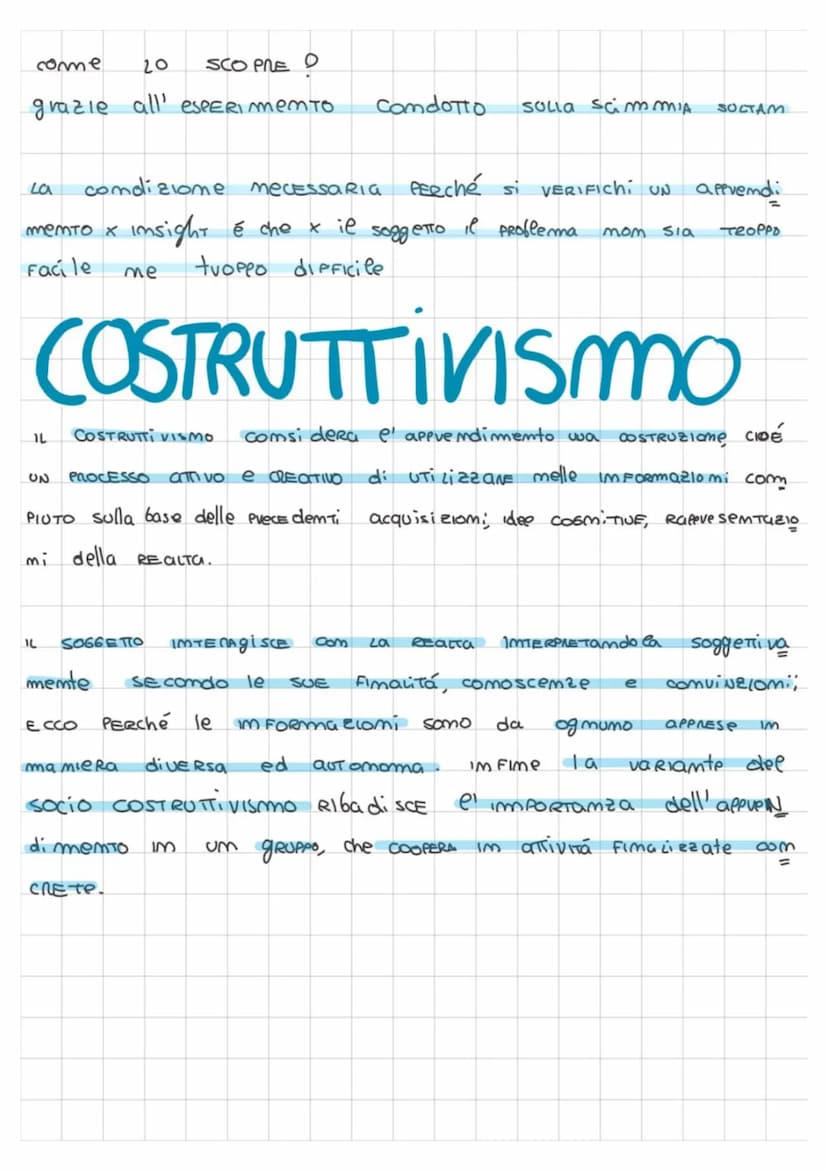 come lo scopre?
grazie all' esperimento condotto sulla scimmia soltan
La condizione necessaria perché si verifichi un apprendi
mento x insight é che x il soggetto il problema non sia troppo
facile ne troppo difficile
COSTRUTTIVISMO
il costruttivismo considera l'apprendimento una costruzione, cioé
un processo attivo e creativo di utilizzare nelle informazioni com
piuto sulla base delle precedenti acquisizioni, idee cognitive, rappresentazio
ni della realta.
il soggetto interagisce con la realta interpretandola soggettiva
mente secondo le sue finalitá, conoscenze e convinzioni;
ecco perché le informazioni sono da ognuno apprese in
maniera diversa ed autonoma. infine la variante del
socio costruttivismo ribadisce l'importanza dell'appren
dimento in un gruppo, che coopera in attivitá finalizzate con
crete.